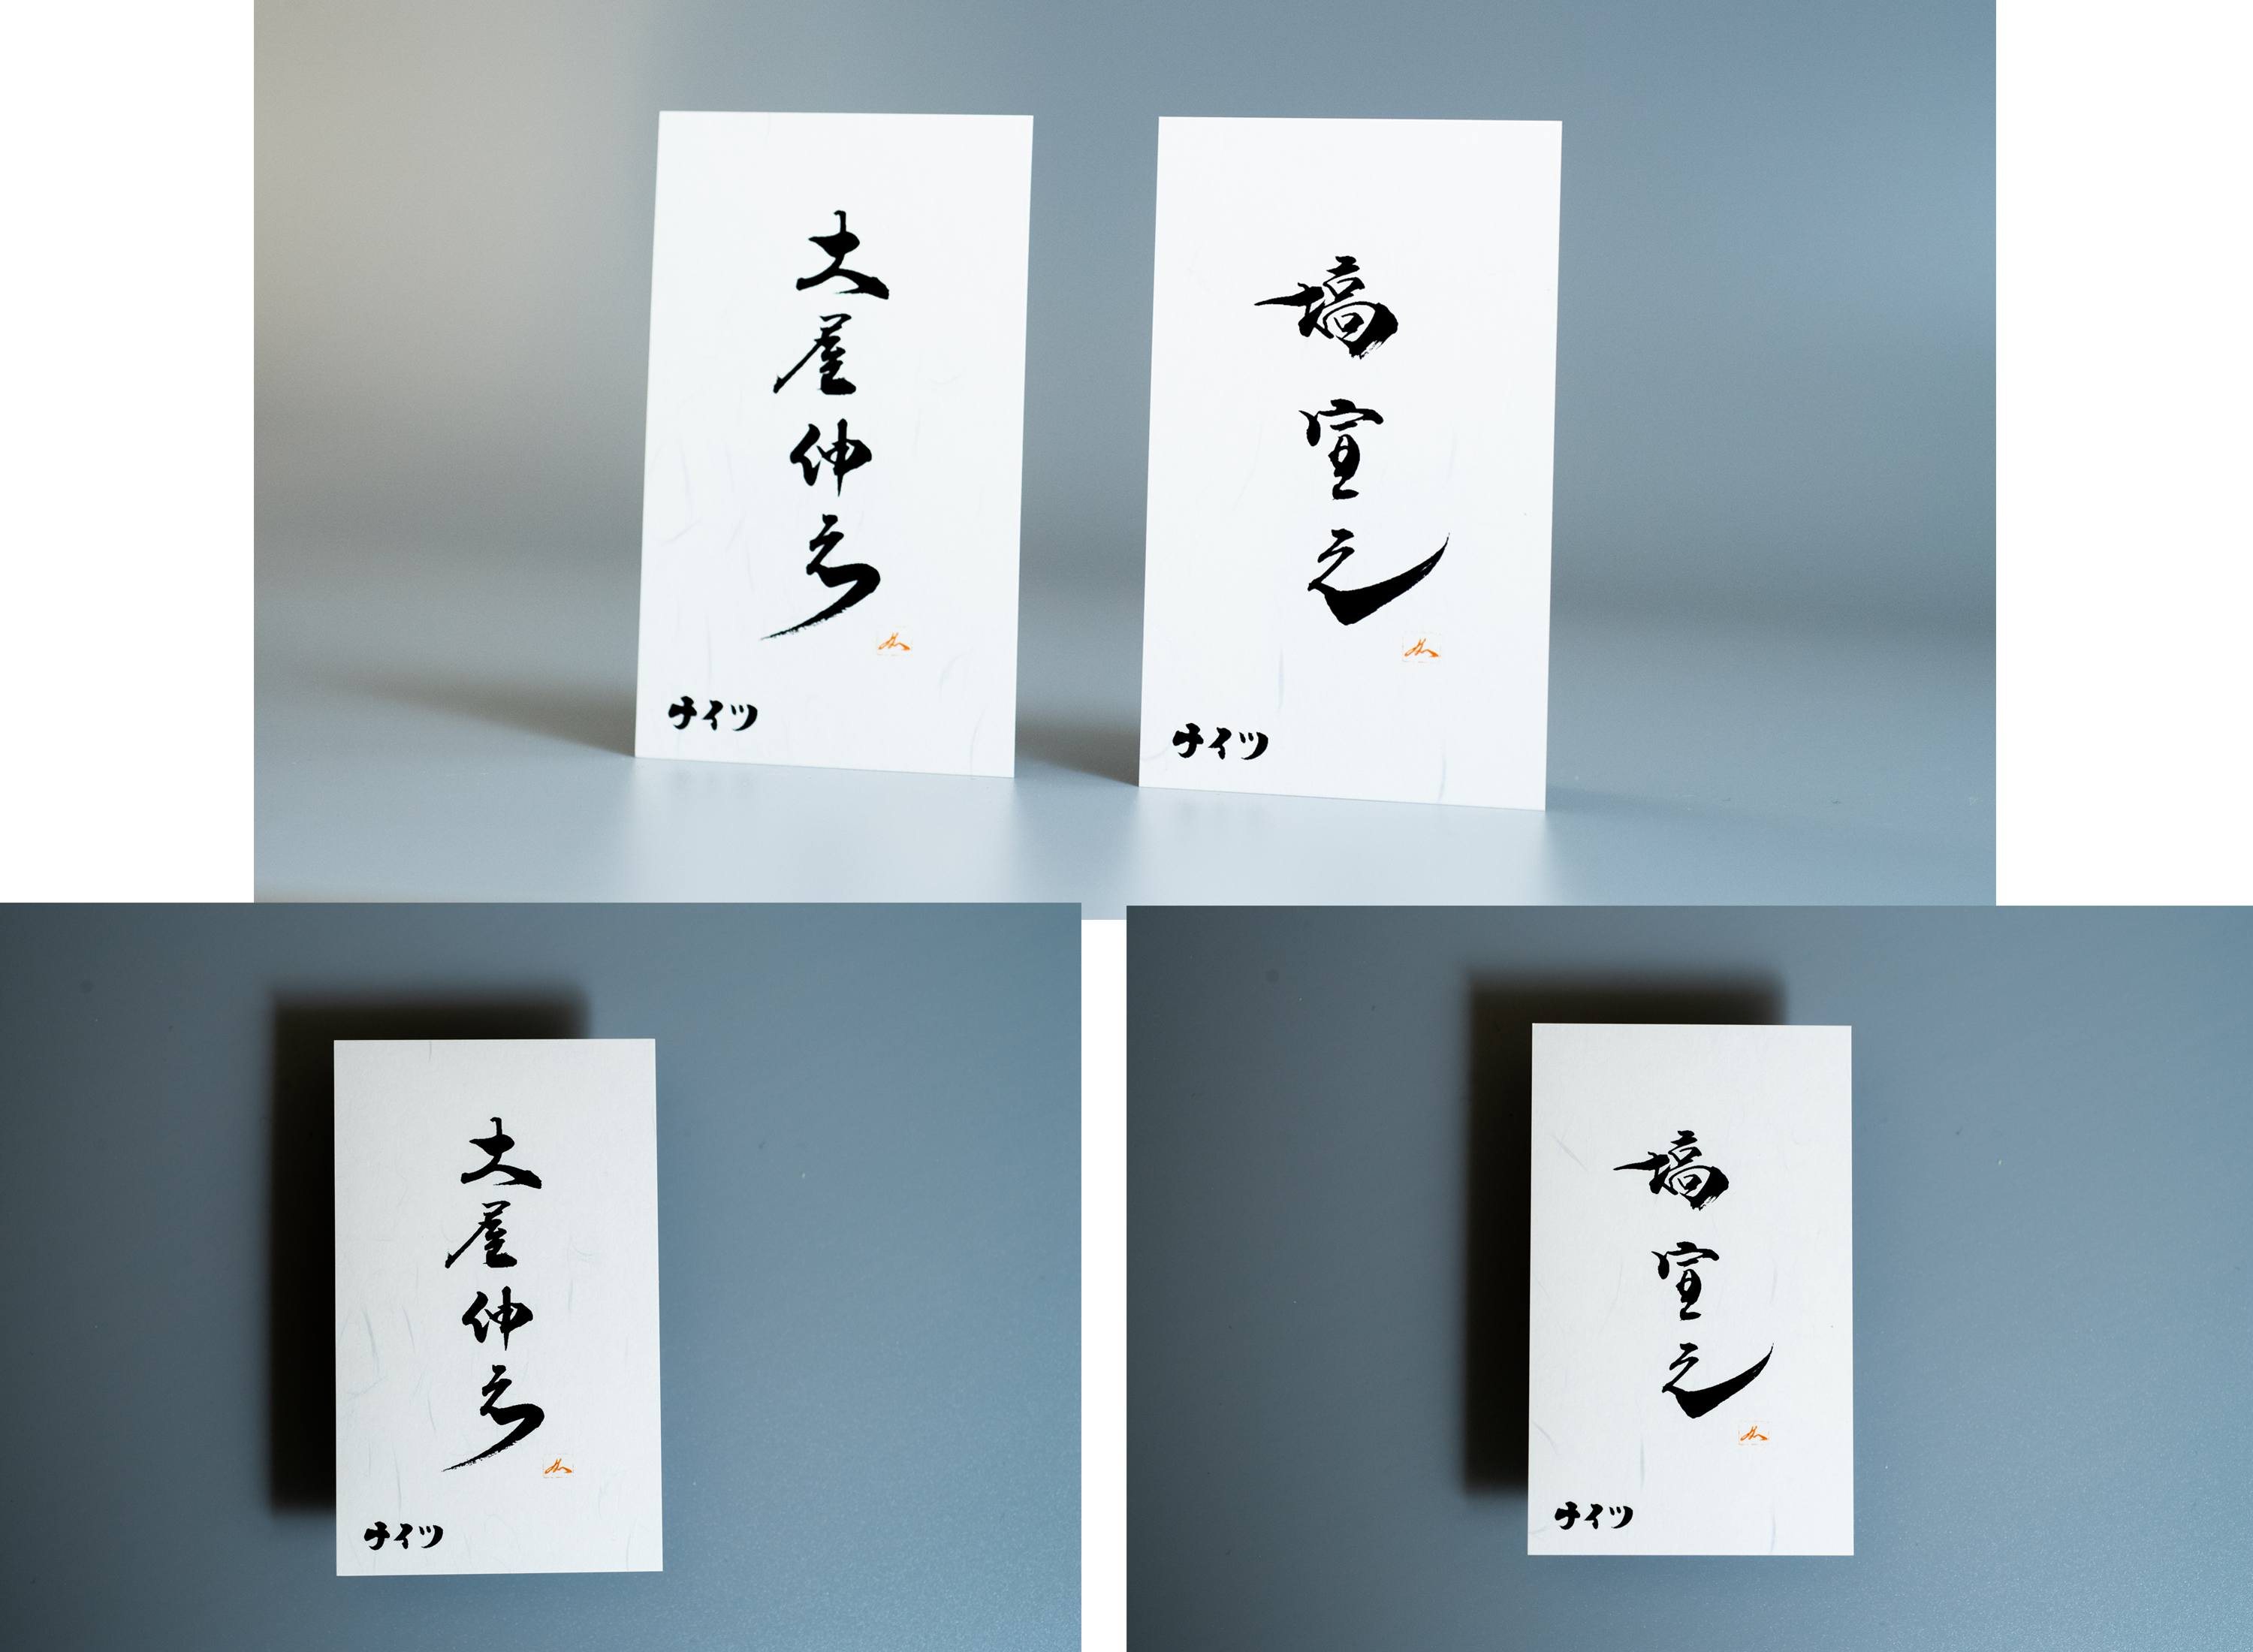 土屋伸之
ナイツ
塙宣之
ナイツ
土屋伸之
ナイツ
塙宣之
ナイツ